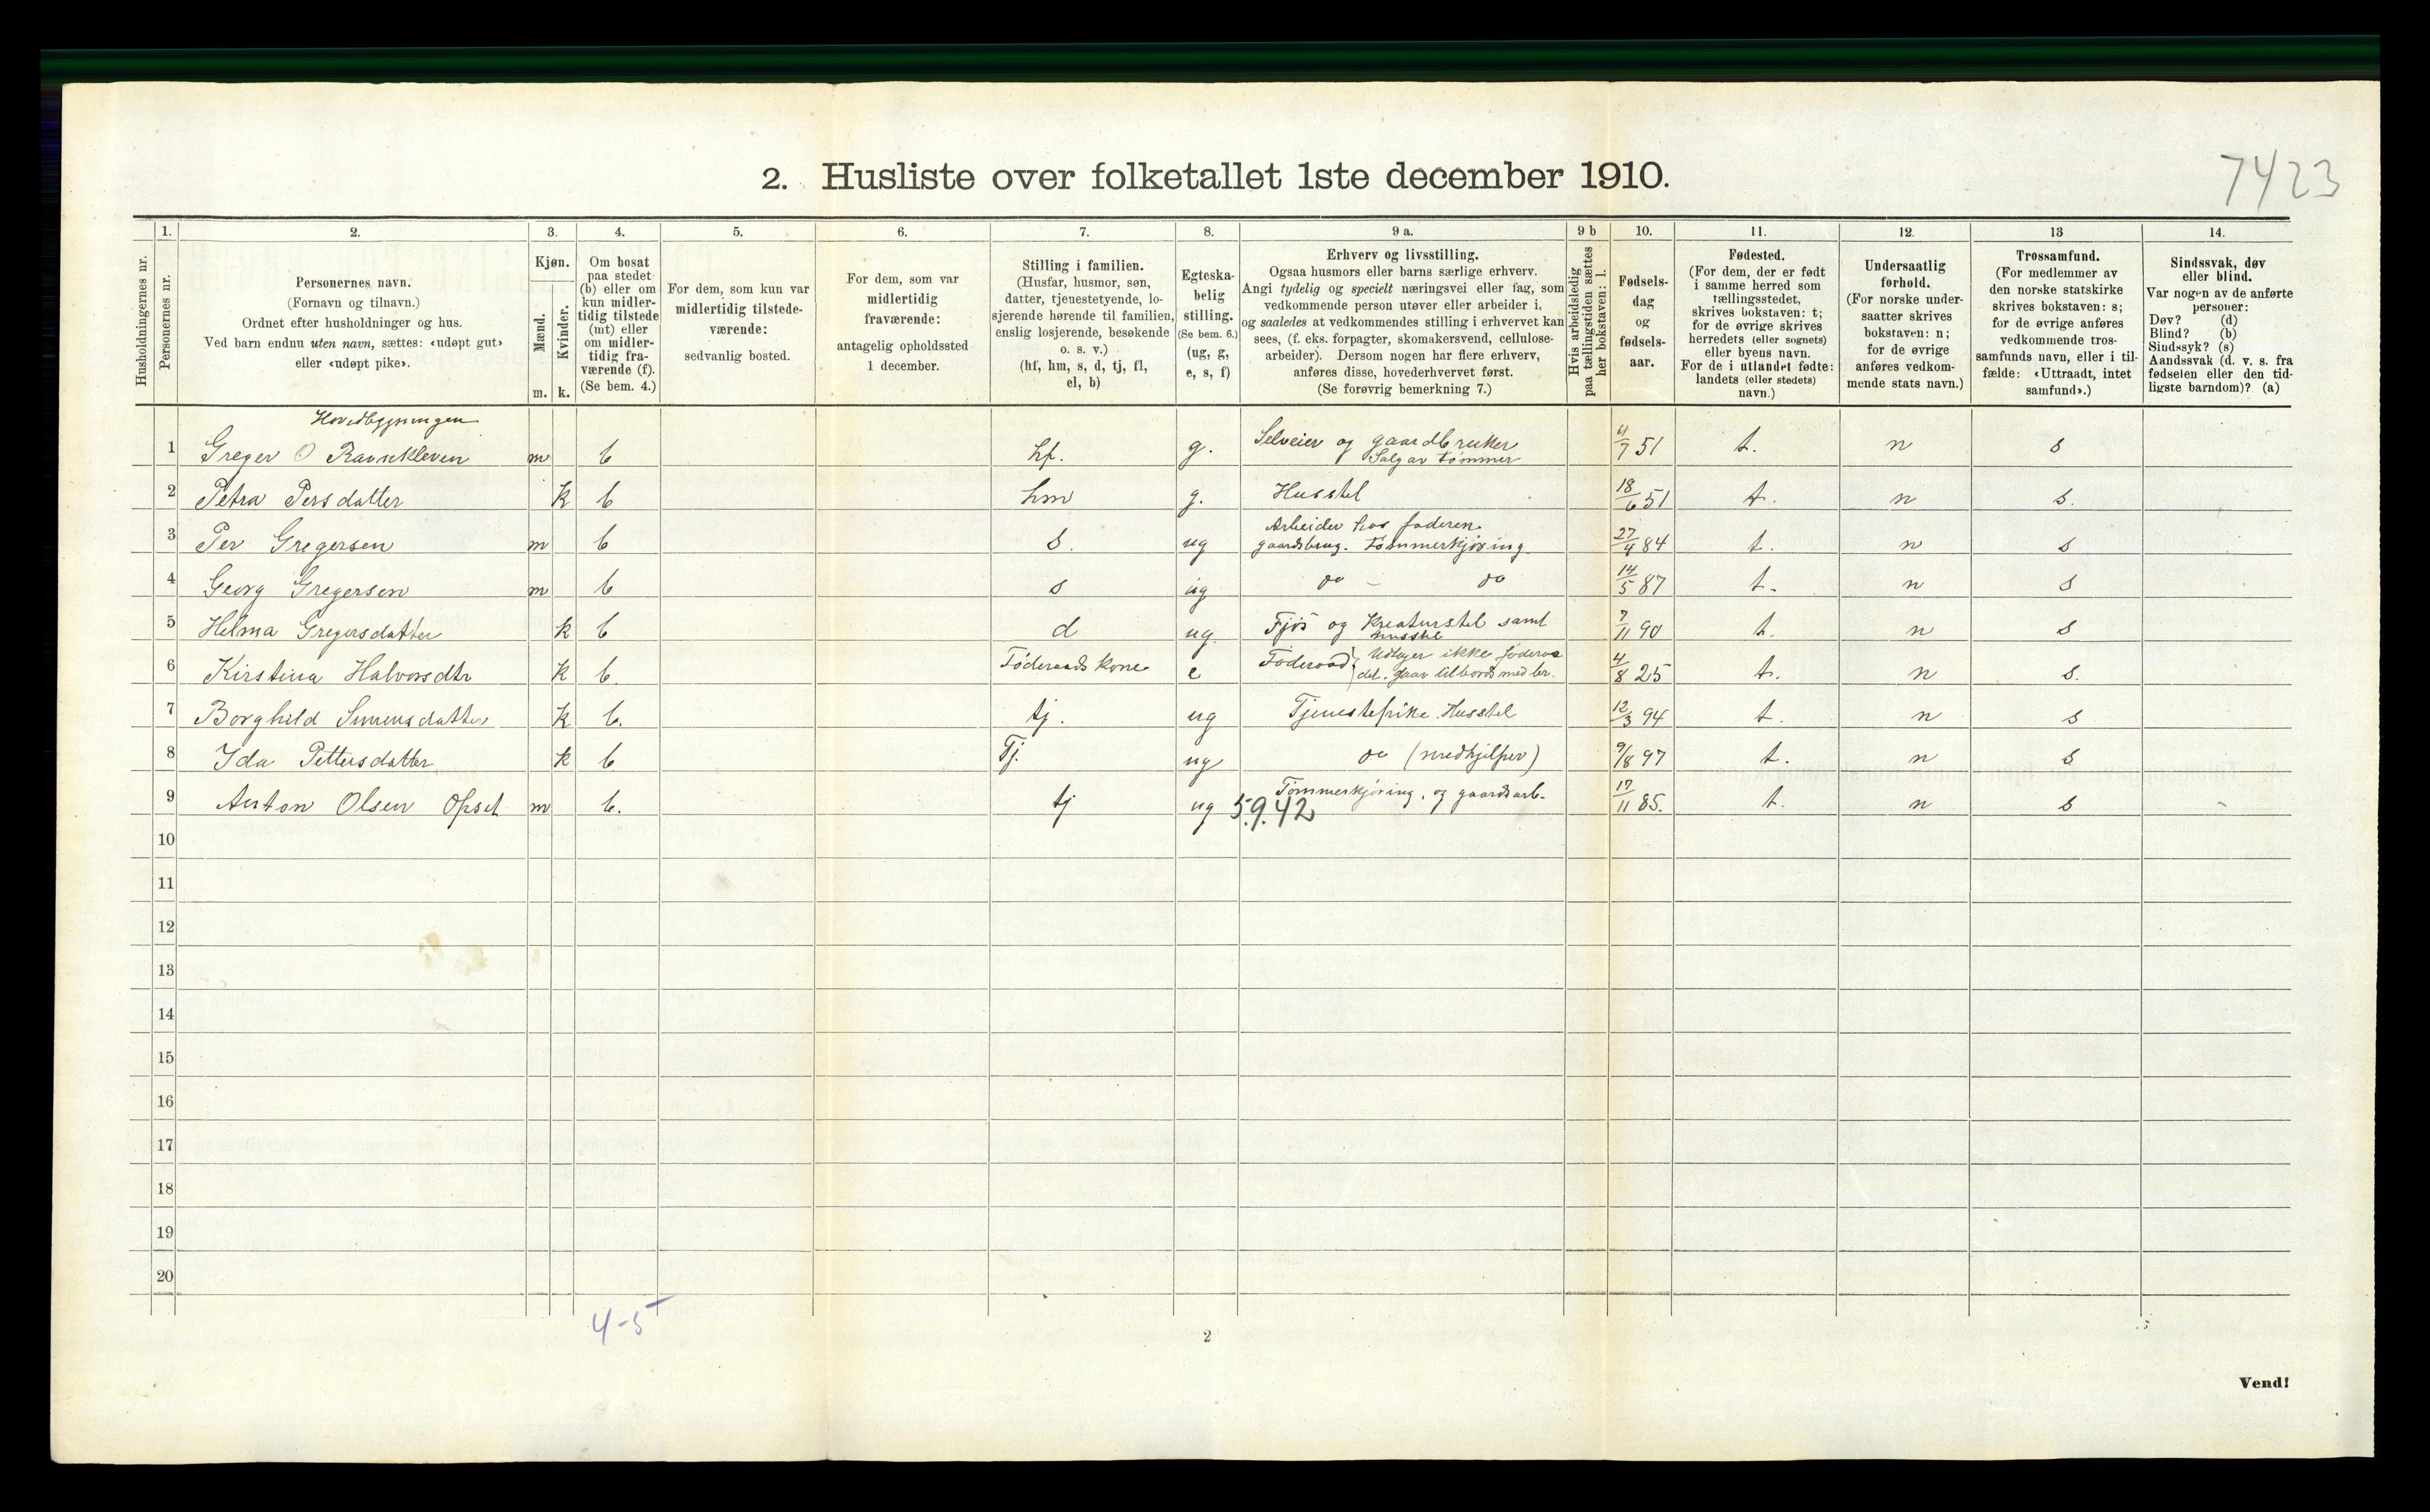 2. Husliste over folketallet 1ste december 1910.
7423
Husholdningernes nr.
1.
Personernes nr.
2.
Personernes navn.
(Fornavn og tilnavn.)
Ordnet efter husholdninger og hus.
Ved barn endnu uten navn, sættes: «udøpt gut»
eller «udøpt pike».
3.
Kjøn.
Mænd.
m.
Kvinder.
k.
4.
Om bosat
paa stedet
(b) eller om
kun midler-
tidig tilstede
(mt) eller
om midler-
tidig fra-
værende (f).
(Se bem. 4.)
5.
For dem, som kun var
midlertidig tilstede-
værende:
sedvanlig bosted.
6.
For dem, som var
midlertidig
fraværende:
antagelig opholdssted
1 december.
7.
Stilling i familien.
(Husfar, husmor, søn,
datter, tjenestetyende, lo-
sjerende hørende til familien,
enslig losjerende, besøkende
o. s. v.)
(hf, hm, s, d, tj, fl,
el, b)
8.
Egteska-
belig
stilling.
(Se bem. 6.)
(ug, g,
e, s, f)
9 a.
Erhverv og livsstilling.
Ogsaa husmors eller barns særlige erhverv.
Angi tydelig og specielt næringsvei eller fag, som
vedkommende person utøver eller arbeider i,
og saaledes at vedkommendes stilling i erhvervet kan
sees, (f. eks. forpagter, skomakersvend, cellulose-
arbeider). Dersom nogen har flere erhverv,
anføres disse, hovederhvervet først.
(Se forøvrig bemerkning 7.)
9 b
Hvis arbeidsledig
paa tællingstiden sættes
her bokstaven: l.
10.
Fødsels-
dag
og
fødsels-
aar.
11.
Fødested.
(For dem, der er født
i samme herred som
tællingsstedet,
skrives bokstaven: t;
for de øvrige skrives
herredets (eller sognets)
eller byens navn.
For de i utlandet fødte:
landets (eller stedets)
navn.)
12.
Undersaatlig
forhold.
(For norske under-
saatter skrives
bokstaven: n;
for de øvrige
anføres vedkom-
mende stats navn.)
13
Trossamfund.
(For medlemmer av
den norske statskirke
skrives bokstaven: s;
for de øvrige anføres
vedkommende tros-
samfunds navn, eller i til-
fælde: «Uttraadt, intet
samfund».)
14.
Sindssvak, døv
eller blind.
Var nogen av de anførte
personer:
Døv? (d)
Blind? (b)
Sindssyk? (s)
Aandssvak (d. v. s. fra
fødselen eller den tid-
ligste barndom)? (a)
Hovedbygningen
1 Greger O Ravnekleven m b hf. g. Selveier og gaardbruker
Salg av tømmer 4/7 51 t. n s
2 Petra Persdatter k b hm g. Husstel 18/6 51 t. n s.
3 Per Gregersen m b s. ug Arbeider hos faderen
gaardsbrug. Tømmerkjøring 27/4 84 t. n s
4 Georg Gregersen m b s ug do - do 14/5 87 t. n s
5 Helma Gregersdatter k b d ug. Fjøs og Kreaturstel samt
husstel 7/11 90 t. n s
6 Kirstina Halvorsdtr k b. Føderaadskone e Føderaad
4/8 25 t. n s.
7 Borghild Simensdatter k b. tj. ug Tjenestepike. Husstel 12/3 94 t. n s
8 Ida Pettersdatter k b Tj. ug do (medhjelper) 9/8 97 t. n s
9 Anton Olsen Opset m b. tj ug Tømmerkjøring, og gaardsarb. 17/11 85. t. n s
5.9.42
10
11
12
13
14
15
16
17
18
19
20
4-5
2
Vend!